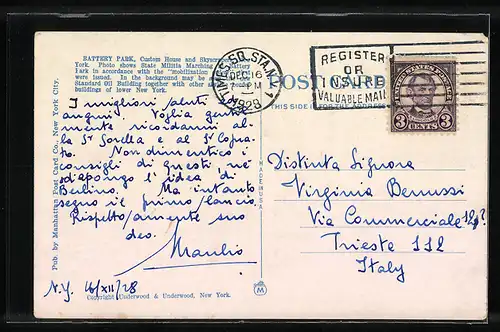 BATTERY PARK, Custom House and Skyscrapers, New
York. Photo shows State Militia Marching in Battery
Park in accordance with the "mobilization
were issued. In the background may be
Standard Oil Building together with other
buildings of lower New York.
TIMES SQ. STA. N.Y.
DEC 16
PM
1928
REGISTER
OR
INSURE
VALUABLE MAIL
UNITED STATES POSTAGE
3 CENTS 3
POST CARD
THIS SIDE IS FOR THE ADDRESS
Pub. by Manhattan Post Card Co., New York City.
MADE IN U.S.A.
I migliori saluti
auguri. Voglia gentil
mente ricordarmi al-
la Sa Sorella e al So Cogna-
to. Non dimentico i
consigli di questi, nè
d'apongo l'idea di
Berlino. Ma intanto
segno il primo lancio.
Rispettosamente suo
dev.
Manlio
N.Y. 16/XII/28
Copyright Underwood & Underwood, New York.
M
Distinta Signora
Virginia Benussi
Via Commerciale
Trieste 112
Italy